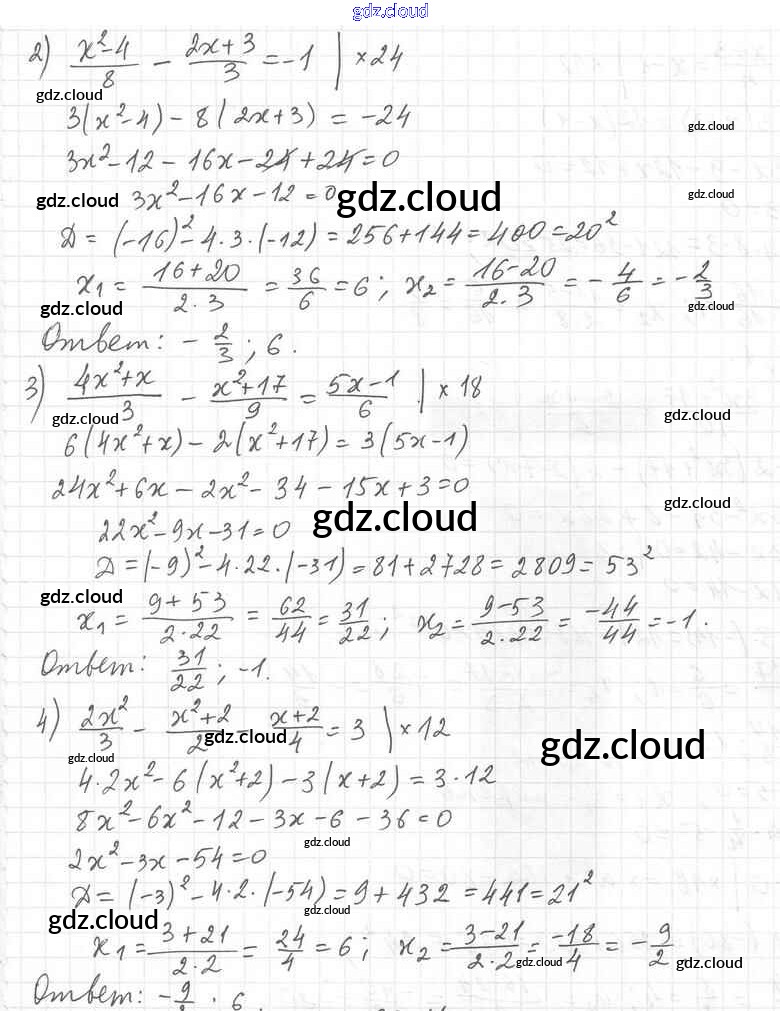 gdz.cloud
2) (x²-4)/8 - (2x+3)/3 = -1 | ×24
gdz.cloud
3(x²-4) - 8(2x+3) = -24
gdz.cloud
3x²-12-16x-24+24=0
gdz.cloud 3x²-16x-12=0 gdz.cloud gdz.cloud
Д = (-16)²-4·3·(-12) = 256+144 = 400 = 20²
x₁ = (16+20)/(2·3) = 36/6 = 6; x₂ = (16-20)/(2·3) = -4/6 = -2/3
gdz.cloud gdz.cloud gdz.cloud
Ответ: -2/3; 6.
3) (4x²+x)/3 - (x²+17)/9 = (5x-1)/6 | ×18
gdz.cloud gdz.cloud
6(4x²+x) - 2(x²+17) = 3(5x-1)
24x²+6x-2x²-34-15x+3=0
gdz.cloud
22x²-9x-31=0 gdz.cloud
Д = (-9)²-4·22·(-31) = 81+2728 = 2809 = 53²
gdz.cloud
x₁ = (9+53)/(2·22) = 62/44 = 31/22; x₂ = (9-53)/(2·22) = -44/44 = -1.
Ответ: 31/22; -1.
4) 2x²/3 - (x²+2)/2 - (x+2)/4 = 3 | ×12
gdz.cloud gdz.cloud gdz.cloud
4·2x²-6(x²+2)-3(x+2)=3·12
8x²-6x²-12-3x-6-36=0
gdz.cloud
2x²-3x-54=0
Д = (-3)²-4·2·(-54) = 9+432 = 441 = 21²
gdz.cloud gdz.cloud
x₁ = (3+21)/(2·2) = 24/4 = 6; x₂ = (3-21)/(2·2) = -18/4 = -9/2
gdz.cloud gdz.cloud
Ответ: -9 ; 6